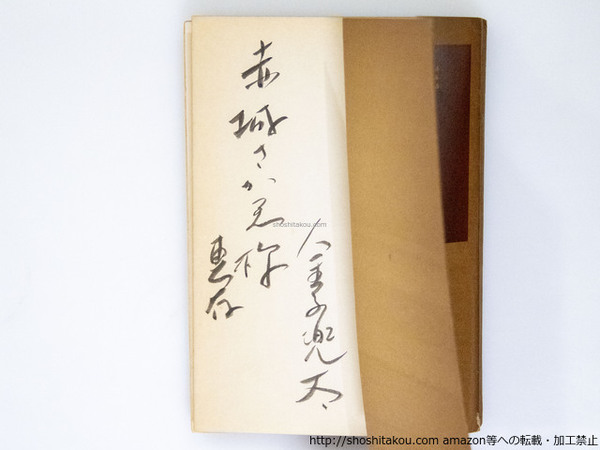 赤城さかえ様
恵存
金子兜太
shoshitakou.com
http://shoshitakou.com amazon等への転載・加工禁止